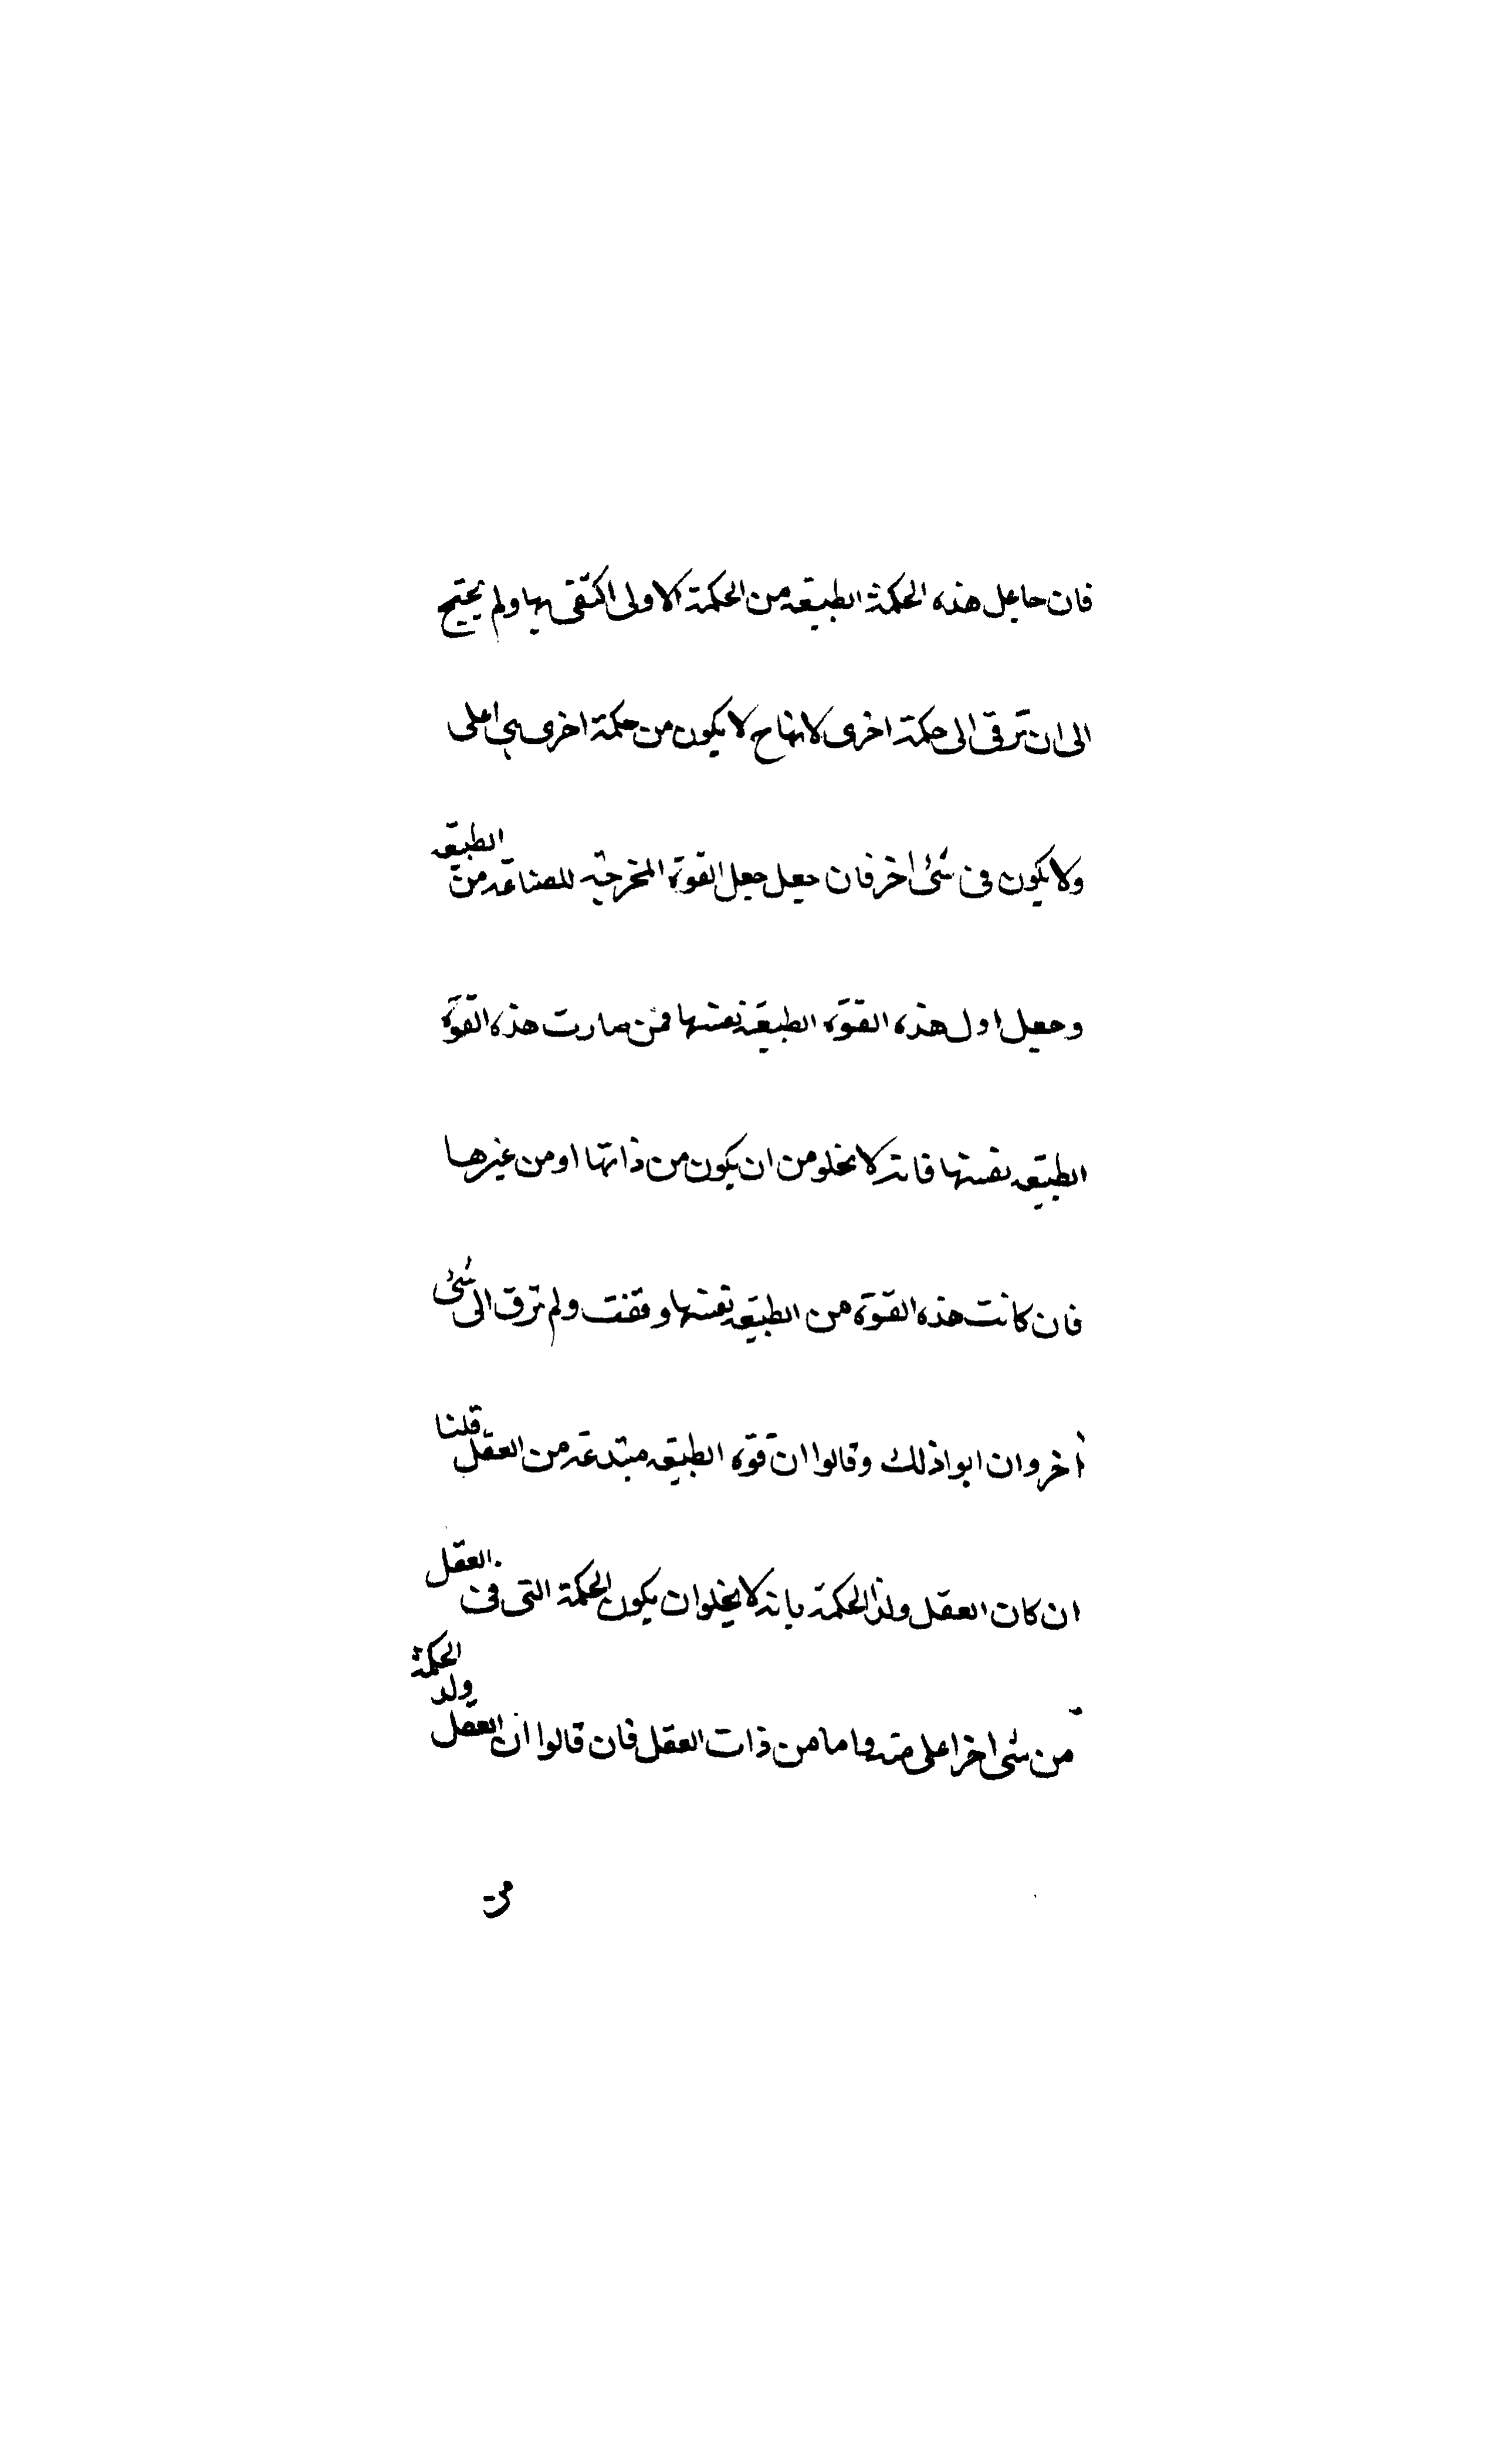 فان جاعل هذه الحكمة الطبيعه من الحكمة الاولى اكتفى بها ولم يحتج
الى ان ترقى الى حكمة اخرى لانها ح لا يكون من حكمة اخرى هي اعلى
ولا يكون فى شئ اخر فان جعل جعل القوة المخرجة للصناعة من الطبيعه
وجعل اول هذه القوة الطبيعة نفسها فمن صارت هذه القوة
الطبيعه نفسها فانه لا يخلو من ان يكون من ذاتها او من غيرها
فان كانت هذه القوة من الطبيعه نفسها وقفت ولم ترق الى شئ
أخر وان ابوا ذلك وقالوا ان قوة الطبيعه مبتدعة من العقل قلنا
ان كان العقل ولد الحكمة بانه لا يخلو ان يكون الحكمة التى فى العقل
من شئ اخر اعلى منه واما من ذات العقل فان قالوا ان العقل ولد الحكمة